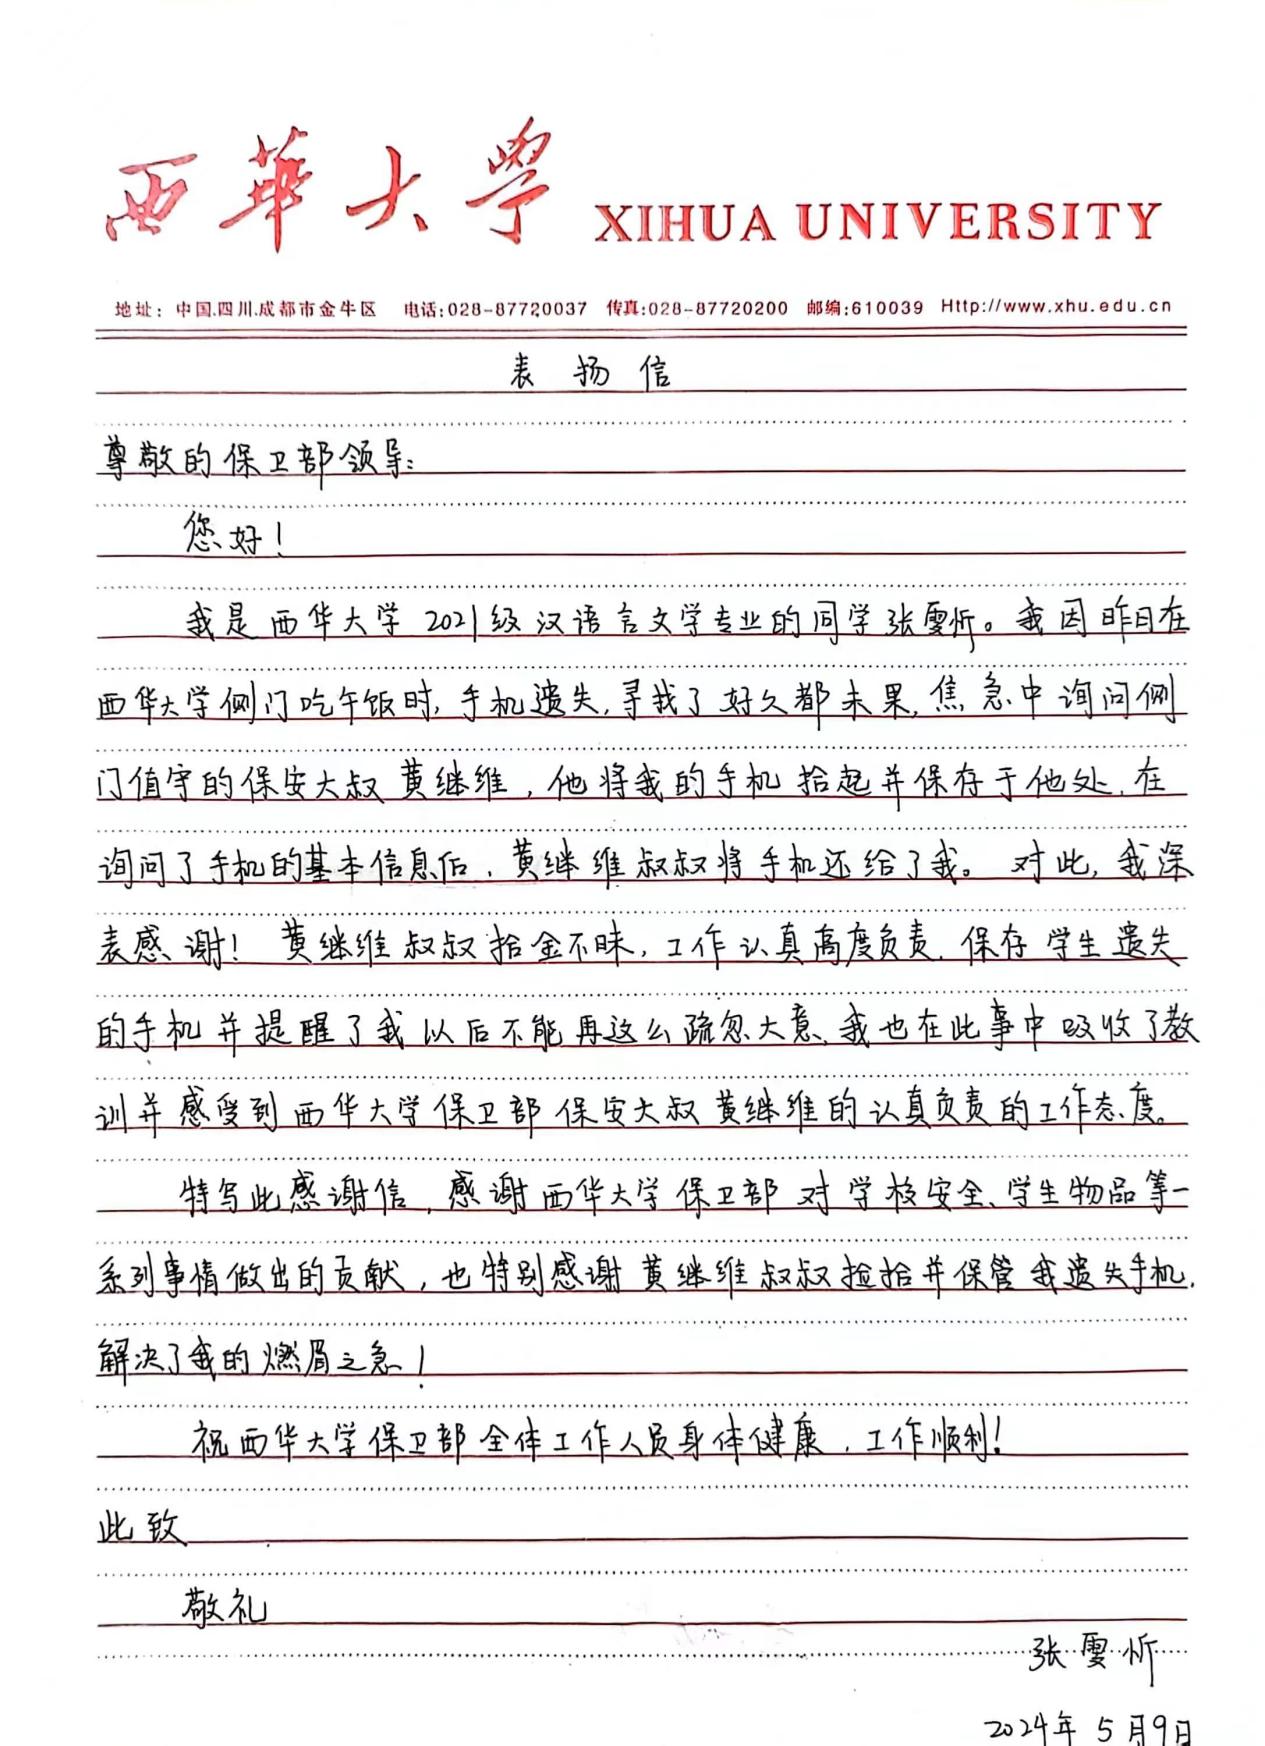 西華大學 XIHUA UNIVERSITY
地址：中国.四川.成都市金牛区 电话:028-87720037 传真:028-87720200 邮编:610039 Http://www.xhu.edu.cn
表扬信
尊敬的保卫部领导：
您好！
我是西华大学2021级汉语言文学专业的同学张雯忻。我因昨日在
西华大学侧门吃午饭时，手机遗失，寻找了好久都未果，焦急中询问侧
门值守的保安大叔黄继维，他将我的手机拾起并保存于他处，在
询问了手机的基本信息后，黄继维叔叔将手机还给了我。对此，我深
表感谢！黄继维叔叔拾金不昧，工作认真高度负责，保存学生遗失
的手机并提醒了我以后不能再这么疏忽大意，我也在此事中吸收了教
训并感受到西华大学保卫部保安大叔黄继维的认真负责的工作态度。
特写此感谢信，感谢西华大学保卫部对学校安全、学生物品等一
系列事情做出的贡献，也特别感谢黄继维叔叔捡拾并保管我遗失手机，
解决了我的燃眉之急！
祝西华大学保卫部全体工作人员身体健康，工作顺利！
此致
敬礼
张雯忻
2024年5月9日